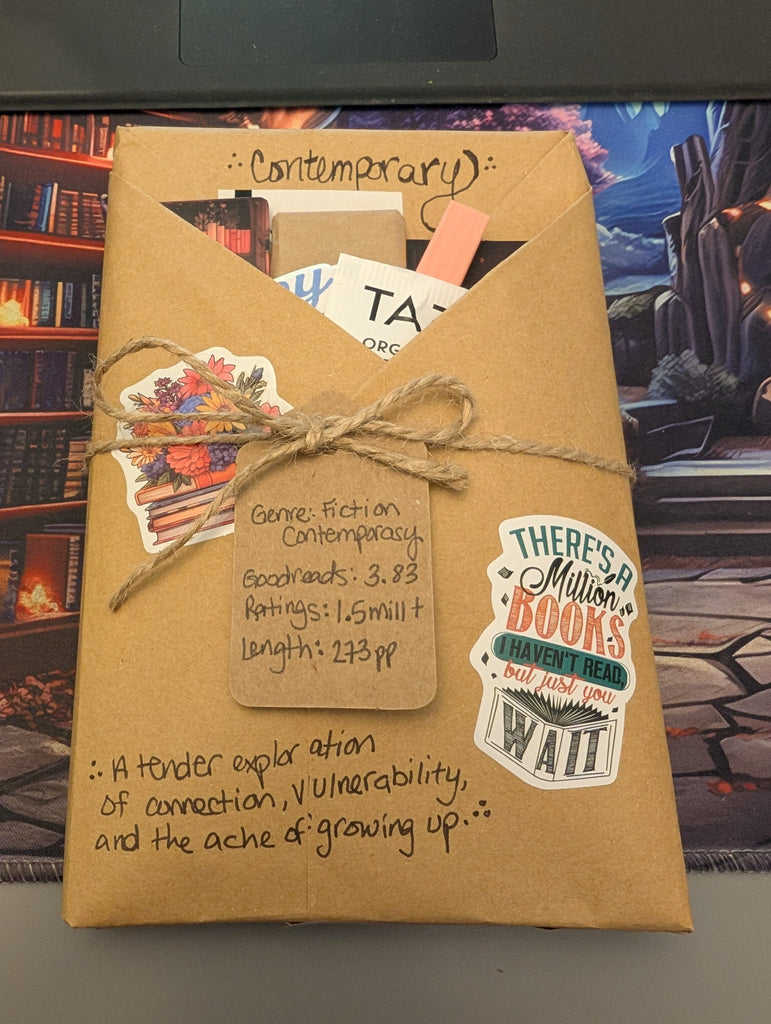 Contemporary
y
TA
ORG
Genre: Fiction
Contemporary
Goodreads: 3.83
Ratings: 1.5mill+
Length: 273pp
THERE'S A
Million
BOOKS
I HAVEN'T READ,
but just you
WAIT
A tender exploration
of connection, vulnerability,
and the ache of growing up.